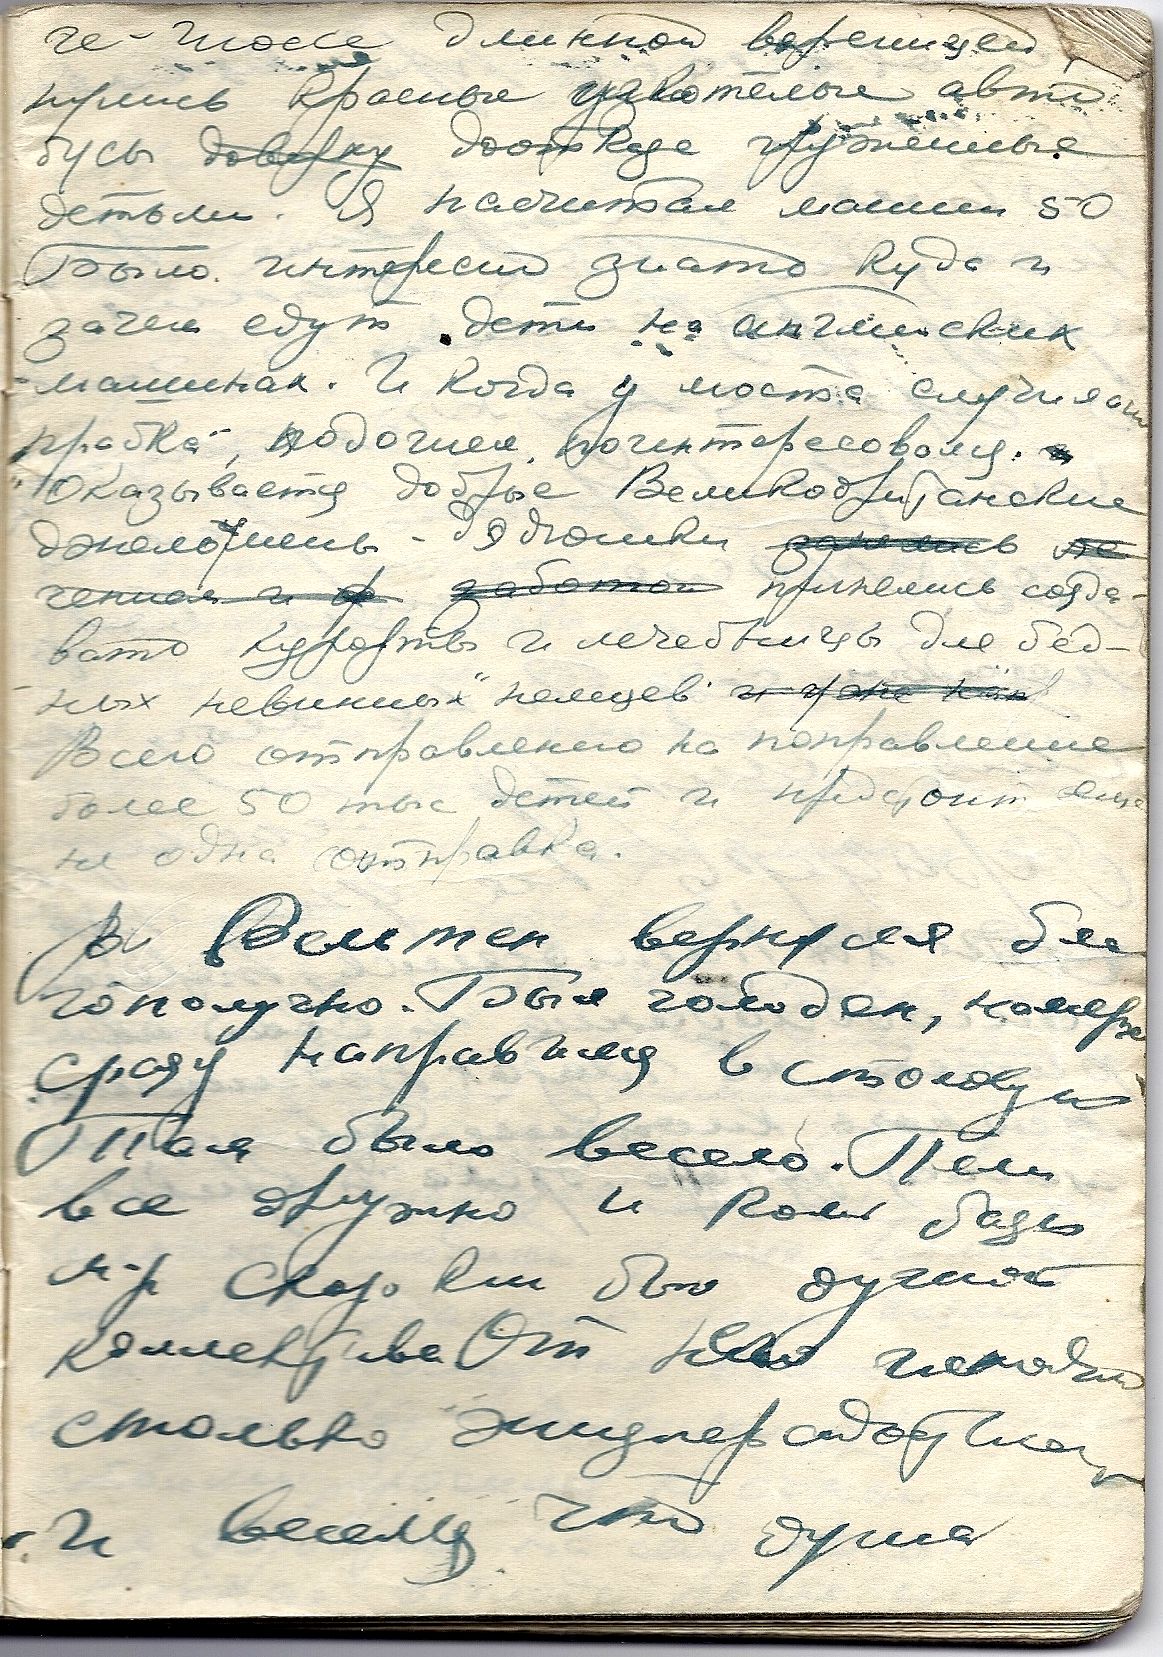 ге-шоссе длинной вереницей
нулись красные узкотелые авто
бусы доверху доотказа груженные
детьми. Я насчитал машин 50
Было интересно знать куда и
зачем едут дети на английских
машинах. И когда у моста случилась
"пробка", подошел, поинтересовался.
Оказывается добрые Великобританские
джельтмены - дядюшки занялись
заботой принялись созда-
вать курорты и лечебницы для бед-
ных "невинных" немцев
Всего отправлено на поправление
более 50 тыс детей и предстоит еще
не одна отправка.
В Вельтен вернулся бла
гополучно. Был голоден,
сразу направился в столовую
Там было весело. Пели
все дружно и
м-р был душой
коллектива От него исходило
столько жизнерадостности
и веселья что душа